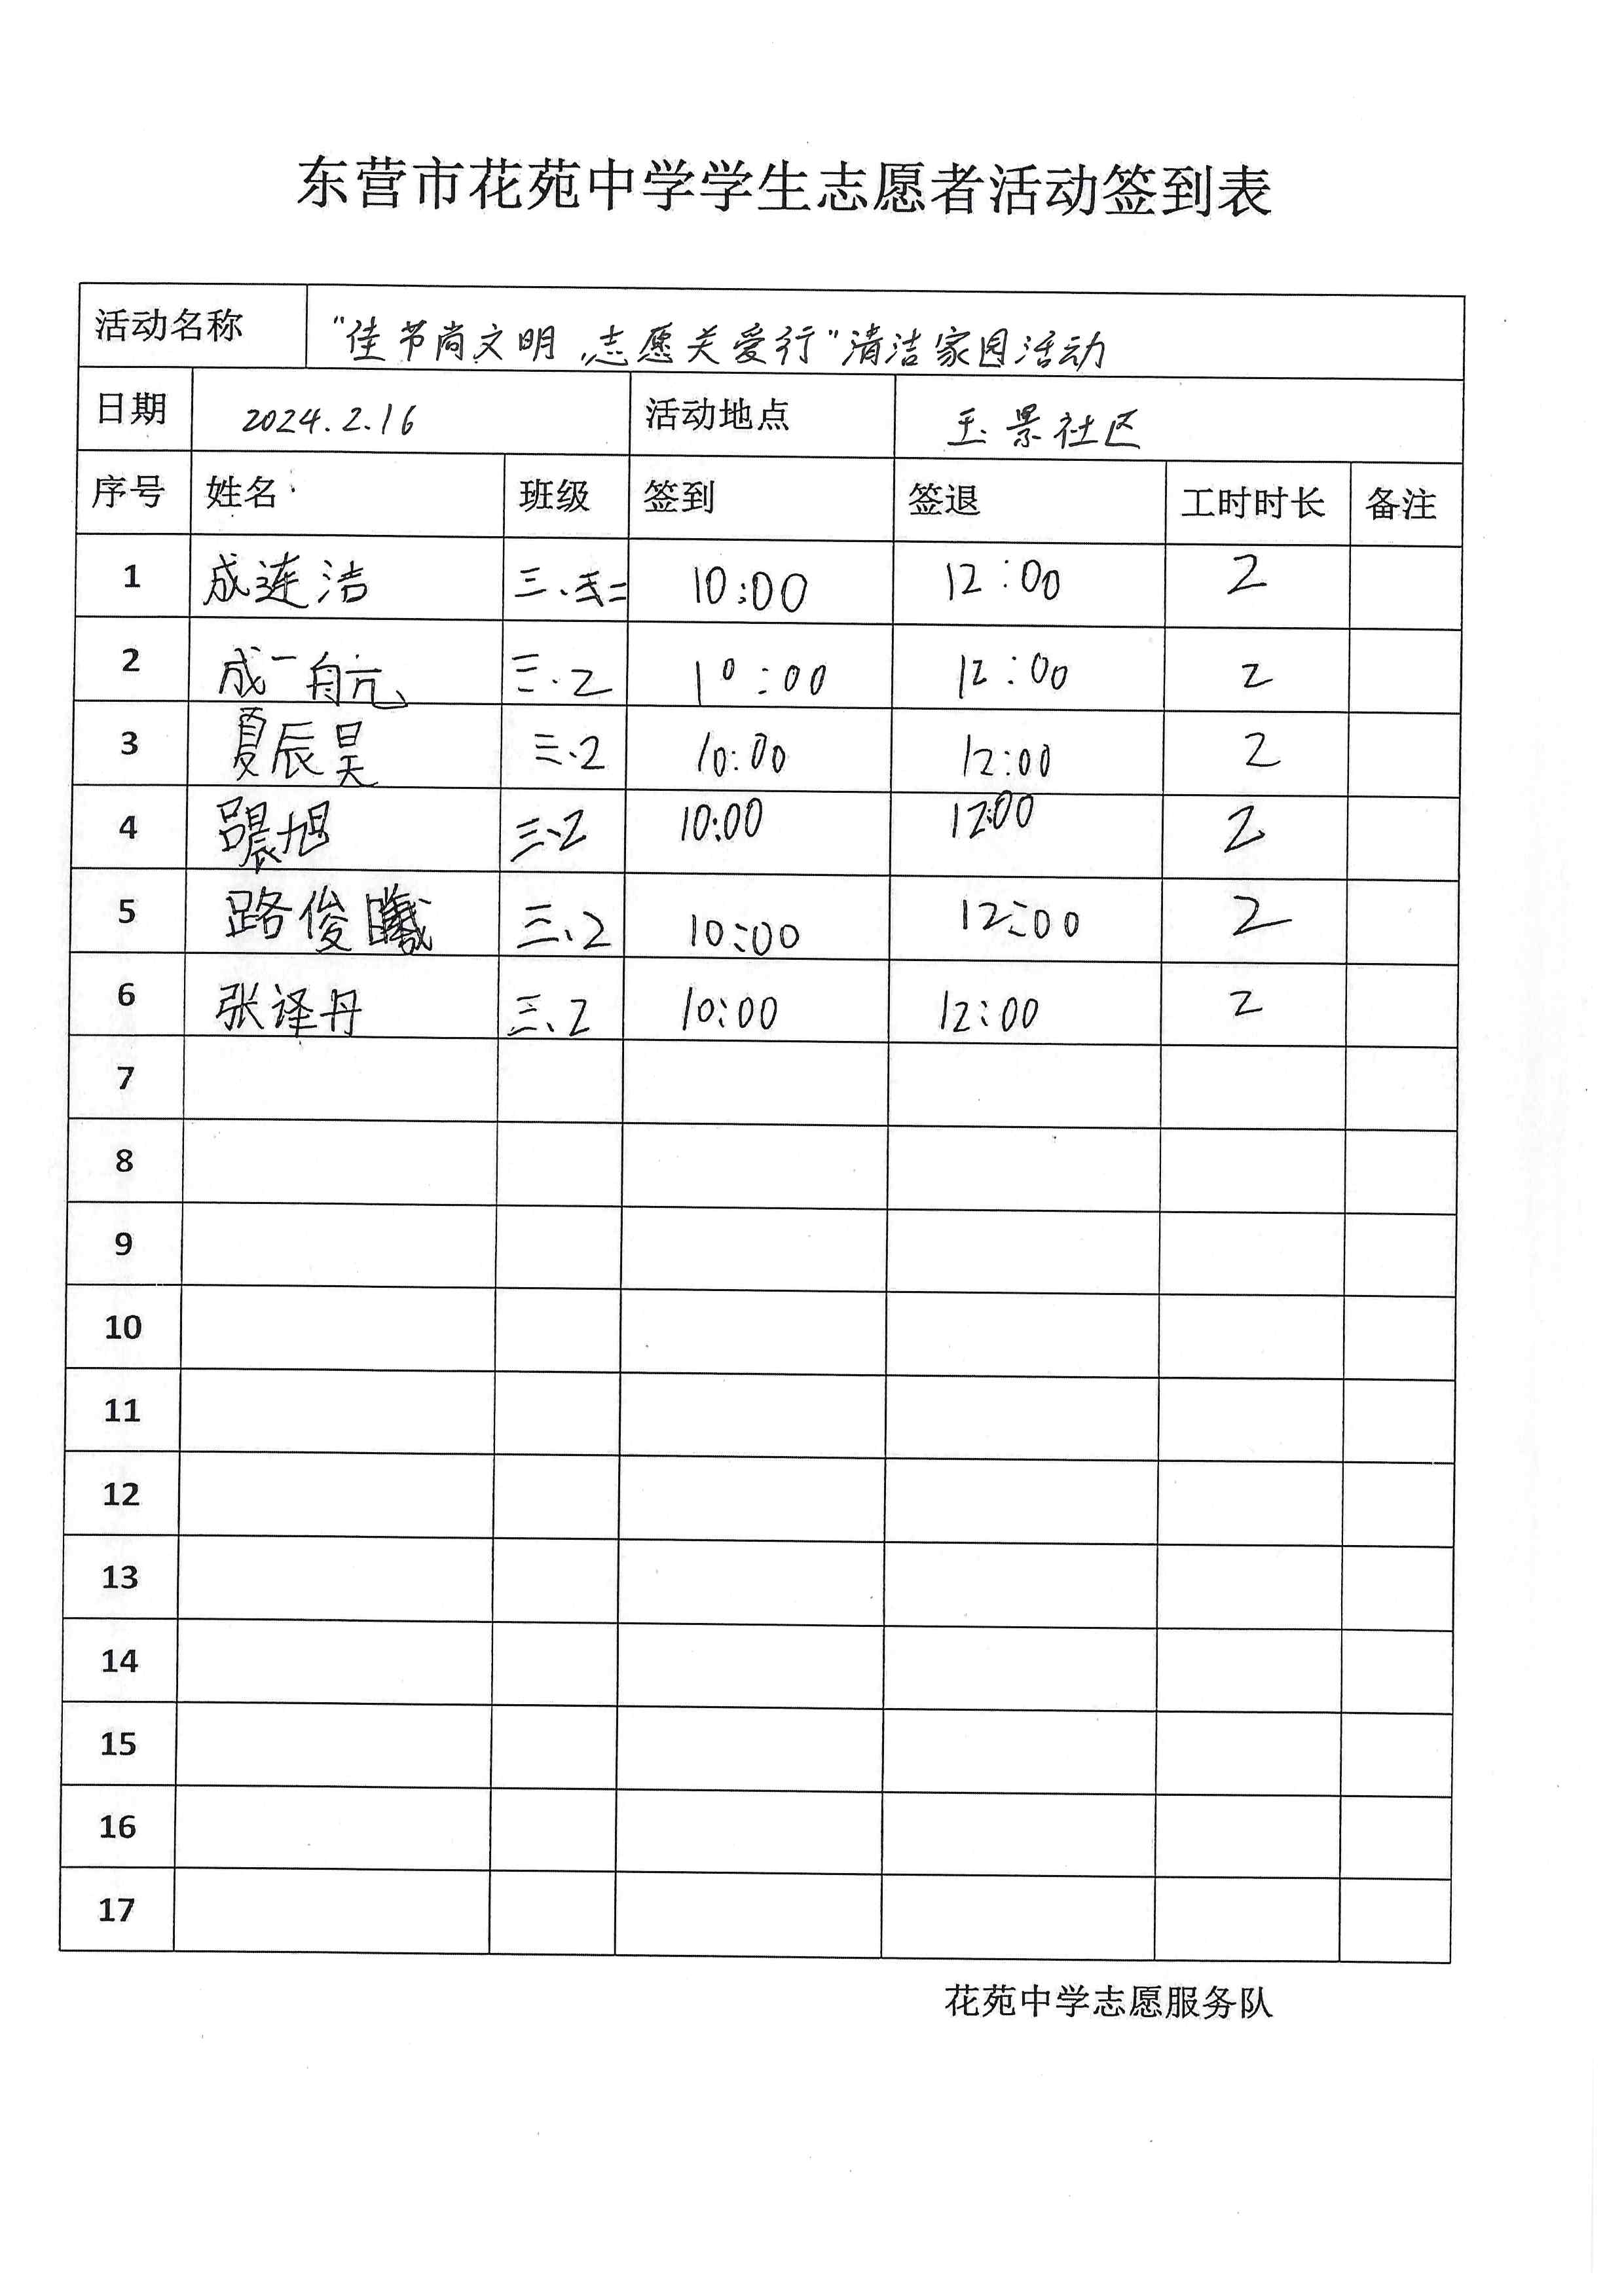 东营市花苑中学学生志愿者活动签到表
活动名称 "佳节尚文明,志愿关爱行"清洁家园活动
日期 2024.2.16 活动地点 玉景社区
序号 姓名 班级 签到 签退 工时时长 备注
1 成连洁 三、二 10:00 12:00 2
2 成一航 三·2 10:00 12:00 2
3 夏辰昊 三、2 10:00 12:00 2
4 吕晨旭 三、2 10:00 12:00 2
5 路俊曦 三、2 10:00 12:00 2
6 张译丹 三、2 10:00 12:00 2
7
8
9
10
11
12
13
14
15
16
17
花苑中学志愿服务队